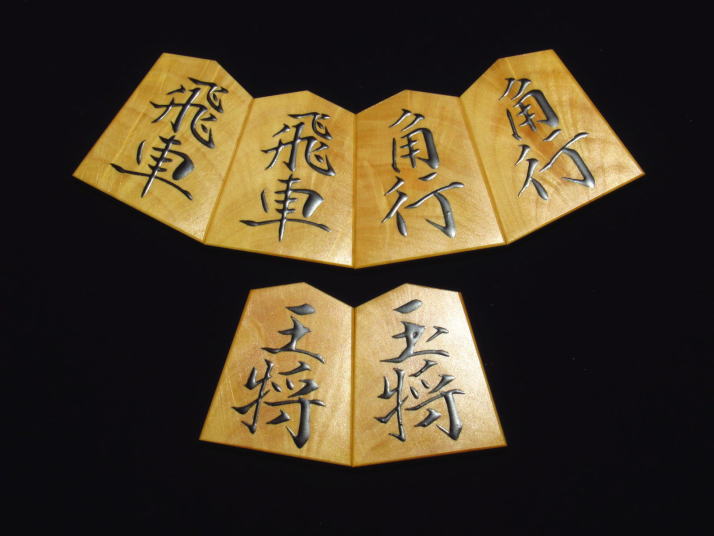 飛車
飛車
角行
角行
王将
玉将